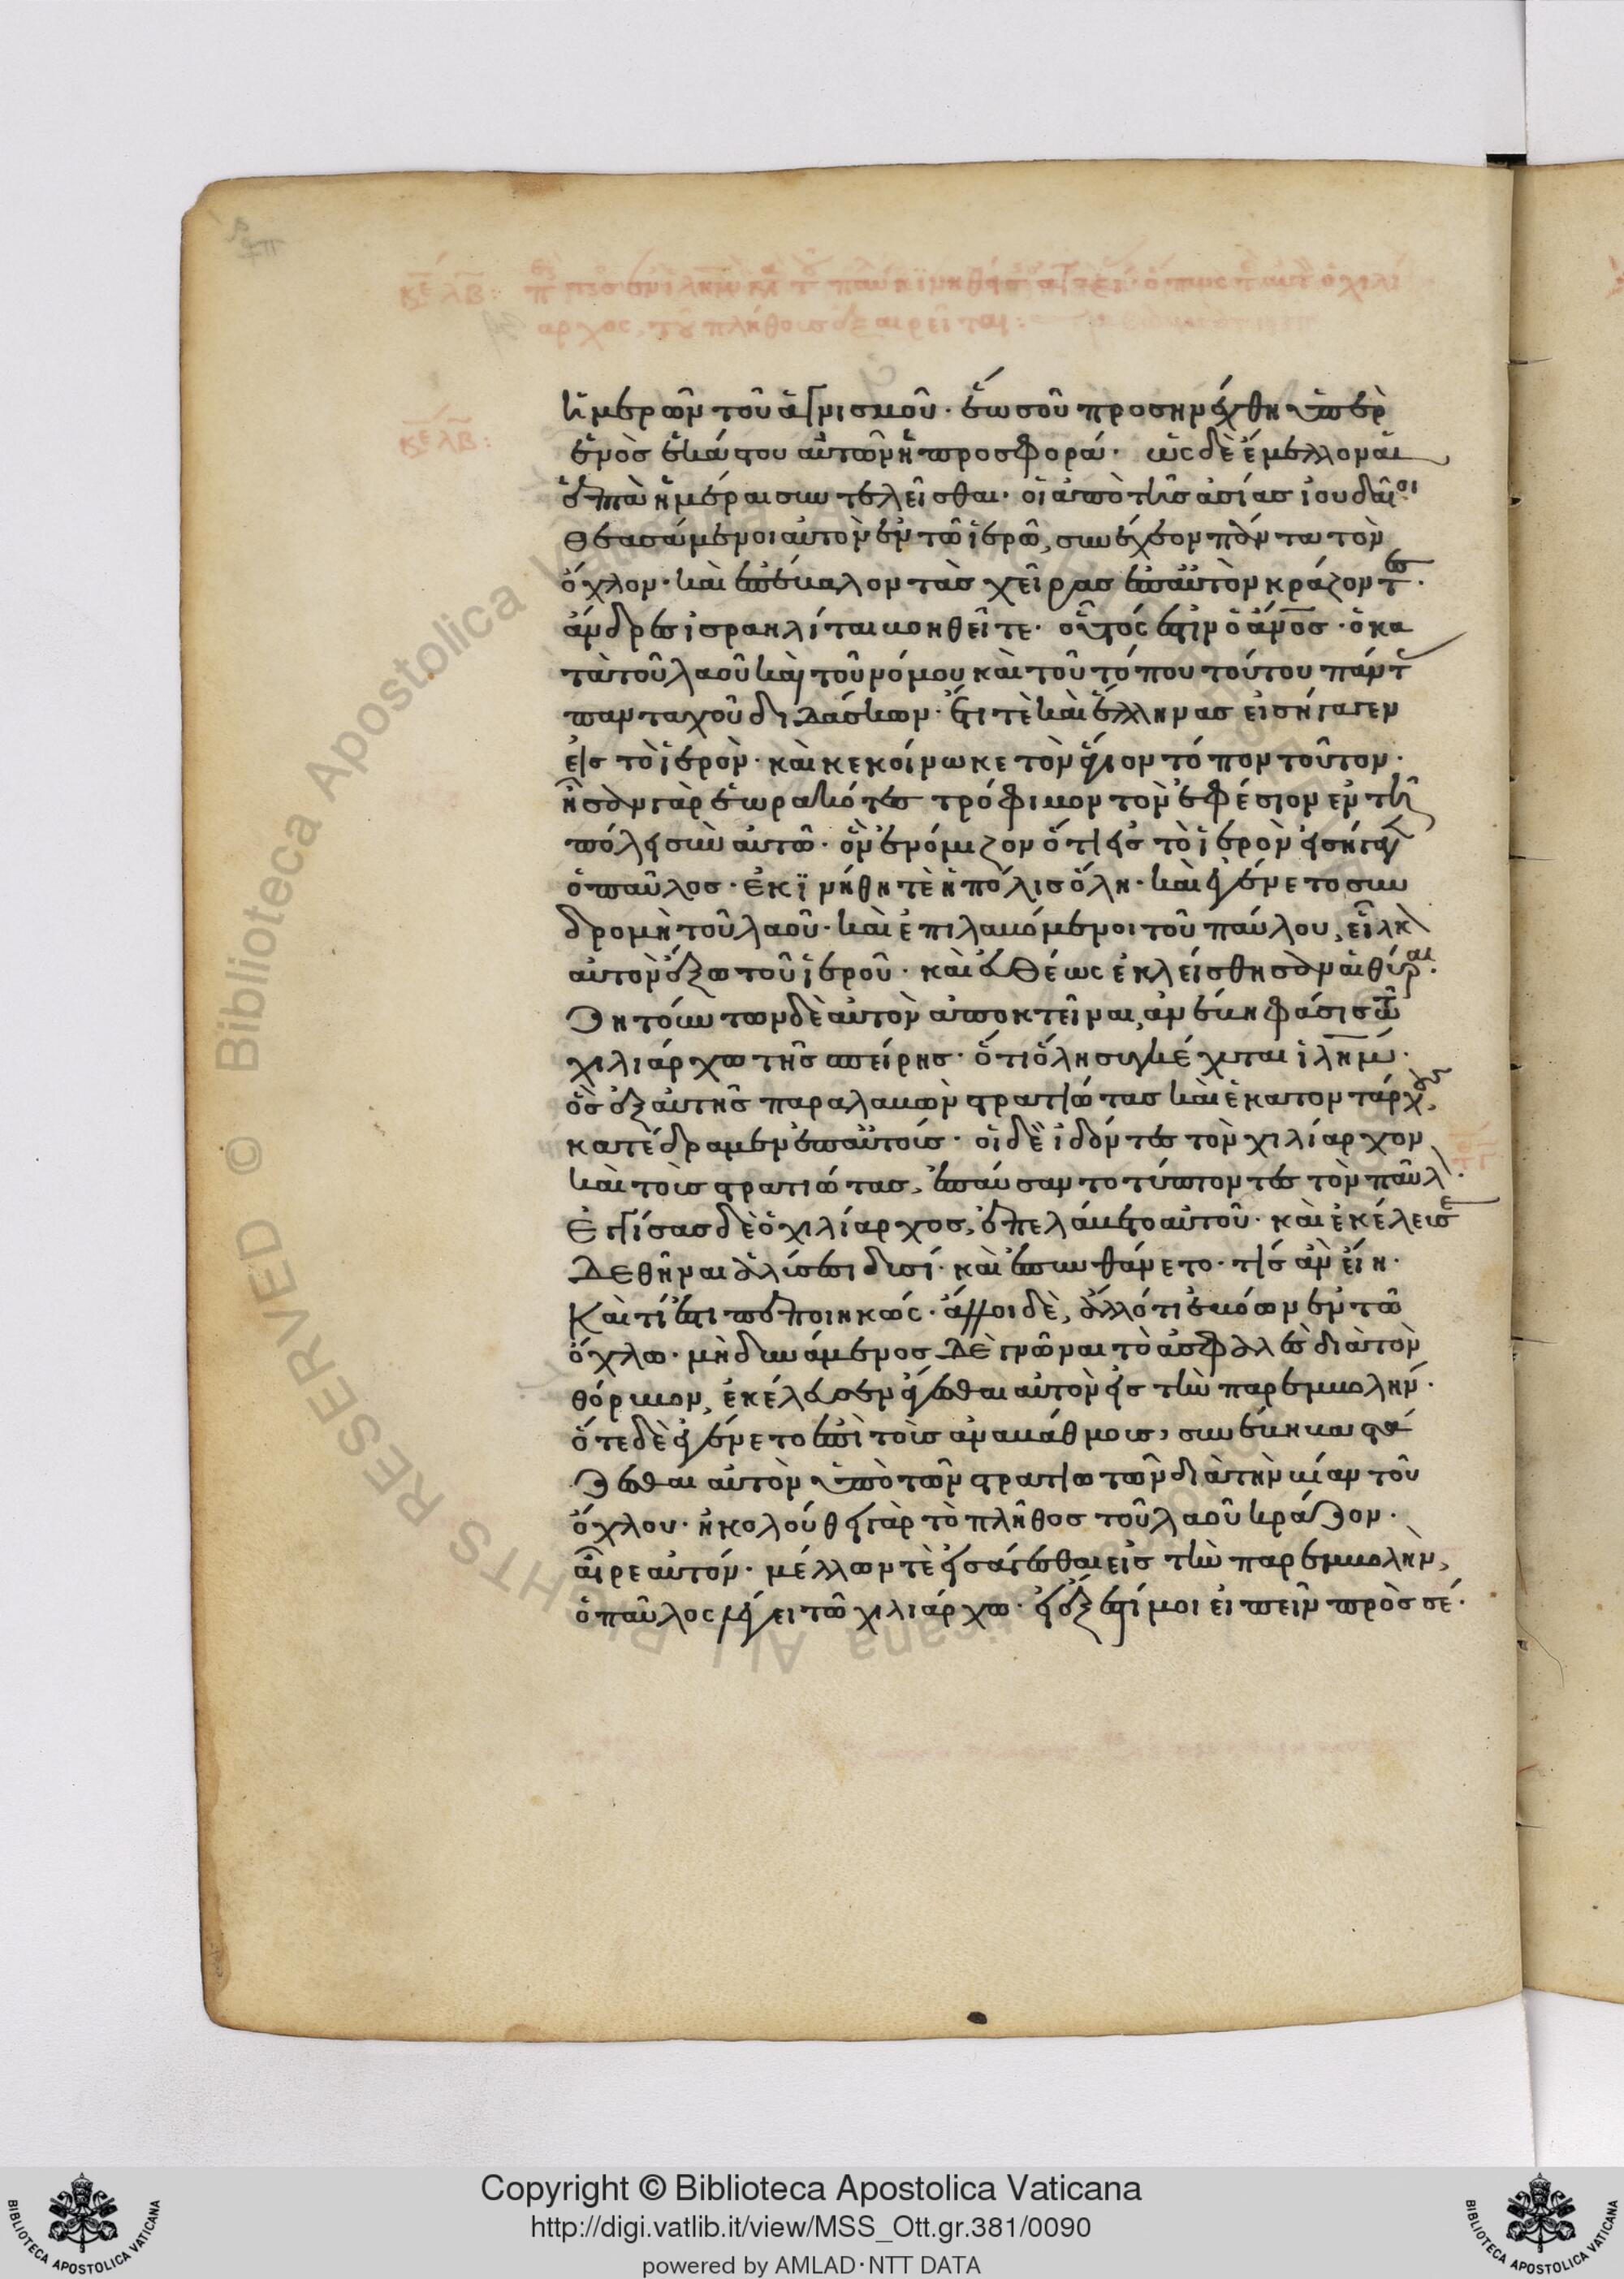 κε λβ: ὁ χιλι
αρχος, τοῦ πλήθους ἐξαιρεῖται:
κε λβ:
ἡμερῶν τοῦ ἁγνισμοῦ· ἕως οὗ προσηνέχθη ὑπὲρ
ἑνὸς ἑκάστου αὐτῶν ἡ προσφορά· ὡς δὲ ἔμελλον αἱ
ἑπτὰ ἡμέραι συντελεῖσθαι· οἱ ἀπὸ τῆς ἀσίας ἰουδαῖοι
θεασάμενοι αὐτὸν ἐν τῶ ἱερῶ, συνέχεον πάντα τὸν
ὄχλον· καὶ ἐπέβαλον τὰς χεῖρας ἐπ αὐτὸν κράζοντες·
ἄνδρες ἰσραηλίται βοηθεῖτε· οὗτός ἐστιν ὁ ἄνος· ὁ κα
τὰ τοῦ λαοῦ καὶ τοῦ νόμου καὶ τοῦ τόπου τούτου πάντ
πανταχοῦ διδάσκων· ἔτι τὲ καὶ ἕλληνας εἰσήγαγεν
εἰς τὸ ἱερὸν· καὶ κεκοίνωκε τὸν ἅγιον τόπον τοῦτον·
ἦσαν γὰρ ἑωρακότες τρόφιμον τὸν ἐφέσιον ἐν τῆ
πόλει σὺν αὐτῶ· ὃν ἐνόμιζον ὅτι εἰς τὸ ἱερὸν εἰσήγαγεν
ὁ παῦλος· ἐκϊνήθη τὲ ἡ πόλις ὅλη· καὶ ἐγένετο συν
δρομὴ τοῦ λαοῦ· καὶ ἐπιλαβόμενοι τοῦ παύλου, εἷλκον
αὐτὸν ἔξω τοῦ ἱεροῦ· καὶ εὐθέως ἐκλείσθησαν αἱ θύραι·
Ζητούντων δὲ αὐτὸν ἀποκτεῖναι, ἀνέβη φάσις τῶ
χιλιάρχω τῆς σπείρης· ὅτι ὅλη συγκέχυται ἱλημ·
ὃς ἐξαυτῆς παραλαβὼν στρατιώτας καὶ ἑκατοντάρχους,
κατέδραμεν ἐπ αὐτούς· οἱ δὲ ἰδόντες τὸν χιλίαρχον
καὶ τοὺς στρατιώτας, ἐπαύσαντο τύπτοντες τὸν παῦλ·
Ἐγγίσας δὲ ὁ χιλίαρχος, ἐπελάβετο αὐτοῦ· καὶ ἐκέλευσε
Δεθῆναι ἁλύσεσι δυσί· καὶ ἐπυνθάνετο· τίς ἂν εἴη·
Καὶ τί ἐστι πεποιηκώς· ἄλλοι δὲ, ἄλλό τι ἐβόων ἐν τῶ
ὄχλω· μὴ δυνάμενος δὲ γνῶναι τὸ ἀσφαλὲς διὰ τὸν
θόρυβον, ἐκέλευσεν ἄγεσθαι αὐτὸν εἰς τὴν παρεμβολήν·
ὅτε δὲ ἐγένετο ἐπὶ τοὺς ἀναβάθμους, συνέβη βαστά
Ζεσθαι αὐτὸν ὑπὸ τῶν στρατιωτῶν διὰ τὴν βίαν τοῦ
ὄχλου· ἠκολούθει γὰρ τὸ πλῆθος τοῦ λαοῦ κράζον·
αἶρε αὐτόν· μέλλων τὲ εἰσάγεσθαι εἰς τὴν παρεμβολὴν,
ὁ παῦλος λέγει τῶ χιλιάρχω· εἰ ἔξεστί μοι εἰπεῖν πρὸς σέ·
Copyright © Biblioteca Apostolica Vaticana
http://digi.vatlib.it/view/MSS_Ott.gr.381/0090
powered by AMLAD·NTT DATA